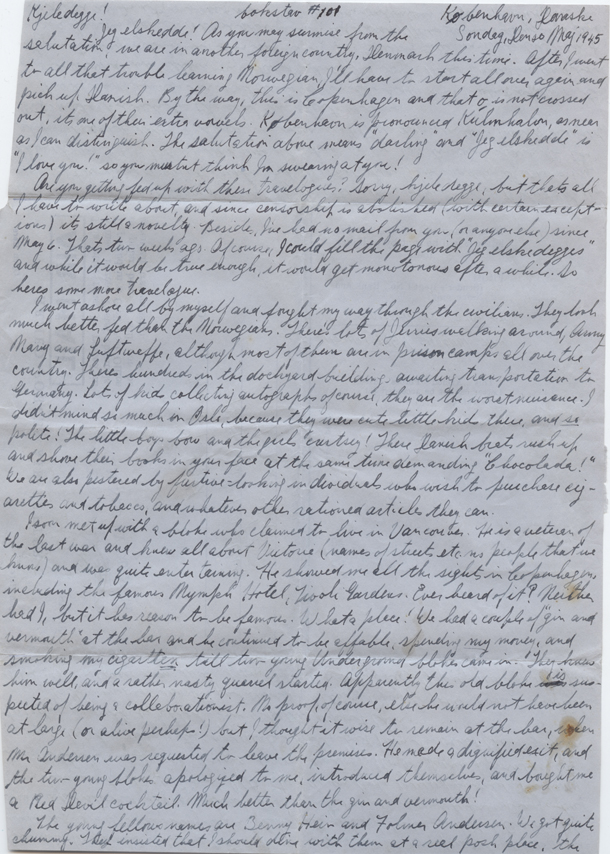 Kjiledegge! bokstav #101 København, Danske
Jeg elshedde! As you may surmise from the Sondag, 20 May, 1945
salutation, we are in another foreign country, Denmark this time. After I went
to all that trouble learning Norwegian, I'll have to start all over again and
pick up Danish. By the way, this is Copenhagen and that o is not crossed
out, its one of their extra vowels. København is pronounced as near
as I can distinguish. The salutation above means "darling" and "Jeg elshedde" is
"I love you!" so you mustnt think I'm swearing at you!
Are you getting fed up with these travelogues? Sorry, kjiledegge, but thats all
I have to write about, and since censorship is abolished (with certain except-
ions) its still a novelty. Beside, I've had no mail from you (or anyone else) since
May 6. Thats two weeks ago. Of course, I could fill the page with "Jeg elshedegges"
and while it would be true enough, it would get monotonous after a while. So
heres some more travelogue.
I went ashore all by myself and fought my way through the civilians. They look
much better fed than the Norwegians. There's lots of Jerries walking around, Army
Navy and Luftwaffe, although most of them are in prison camps all over the
country. Theres hundreds in the dockyard building, awaiting transportation to
Germany. Lots of kids collecting autographs of course, they are the worst nuisance. I
didn't mind so much in Oslo, because they were cute little kids there, and so
polite! The little boys bow and the girls curtsey! These Danish brats rush up
and shove their books in your face at the same time demanding "Chocolada!"
We are also pestered by furtive-looking individuals who wish to purchase cig-
arettes and tobacco, and whatever other rationed articles they can.
I soon met up with a bloke who claimed to live in Vancouver. He is a veteran of
the last war and knew all about Victoria (names of streets, etc. no people that we
know) and was quite entertaining. He showed me all the sights in Copenhagen
including the famous Nymph Hotel, Tivoli Gardens. Ever heard of it? Neither
had I, but it has reason to be famous. What a place! We had a couple of "gin and
vermouth" at the bar and he continued to be affable, spending my money, and
smoking my cigarettes till two young Underground blokes came in. They knew
him well, and a rather nasty quarrel started. Apparently this old bloke is sus-
pected of being a collaborationist. No proof of course, else he would not have been
at large (or alive perhaps!) but, I thought it wise to remain at the bar, when
Mr. Anderson was requested to leave the premises. He made a dignified exit, and
the two young blokes apologized to me, introduced themselves, and bought me
a Red Devil cocktail. Much better than the gin and vermouth!
The young fellows names are Benny Hein and Folmer Andersen. We got quite
chummy. They insisted that I should dine with them at a real posh place, the